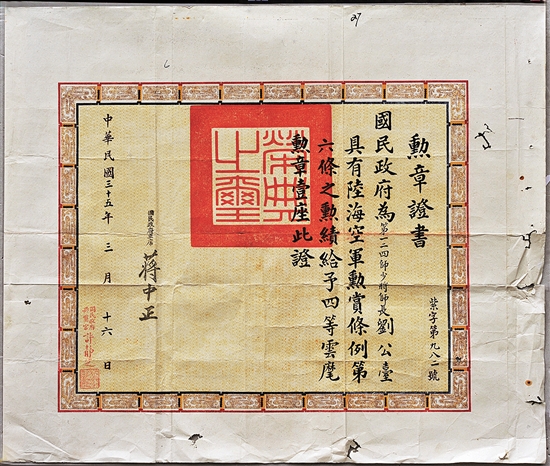 勲章證書
國民政府為第一二四師少將師長劉公臺
具有陸海空軍勲賞條例第
六條之勲績給予四等雲麾
勲章壹座此證
榮典之璽
國民政府主席
蔣中正
中華民國三十五年三月十六日
紫字第九八一號
27